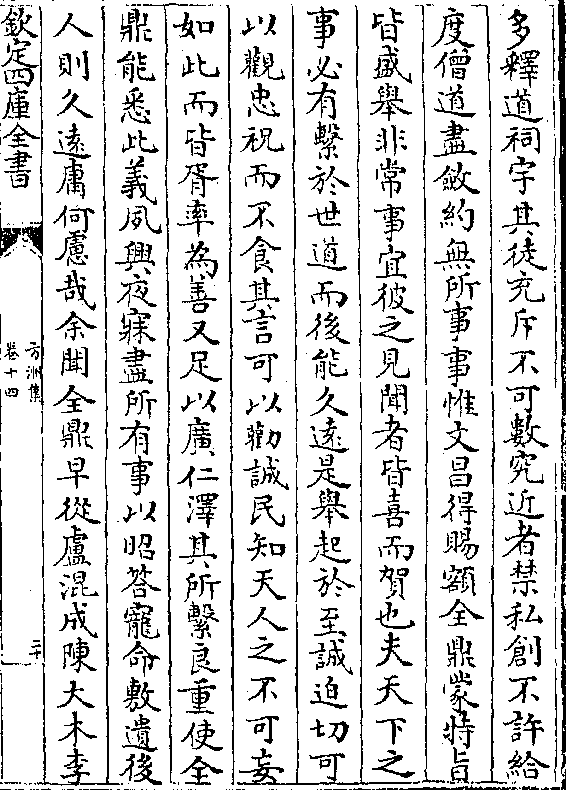 多釋道祠宇其徒充斥不可數究近者禁私創不許給
度僧道盡斂約無所事事惟文昌得賜額全鼎蒙特旨
皆盛舉非常事宜彼之見聞者皆喜而賀也夫天下之
事必有繫於世道而後能久遠是舉起於至誠迫切可
以觀忠祝而不食其言可以勸誠民知天人之不可妄
如此而皆胥率為善又足以廣仁澤其所繫良重使全
鼎能悉此義夙興夜寐盡所有事以昭答寵命敷遺後
人則久遠庸何慮哉余聞全鼎早從盧混成陳大木李
欽定四庫全書
方洲集
卷十四
二十